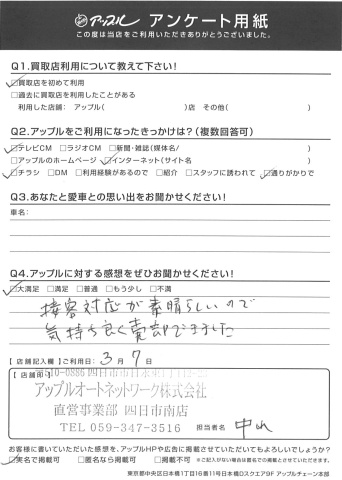 アップル アンケート用紙
この度は当店をご利用いただきありがとうございました。
Q1.買取店利用について教えて下さい!
□買取店を初めて利用
□過去に買取店を利用したことがある
利用した店舗: アップル( )店 その他( )
Q2.アップルをご利用になったきっかけは?(複数回答可)
□テレビCM □ラジオCM □新聞・雑誌(媒体名/ )
□アップルのホームページ □インターネット(サイト名 )
□チラシ □DM □利用経験があるので □紹介 □スタッフに誘われて □通りがかりで
Q3.あなたと愛車との思い出をお聞かせください!
車名:
Q4.アップルに対する感想をぜひお聞かせください!
□大満足 □満足 □普通 □もう少し □不満
接客対応が素晴らしいので
気持ち良く売却できました
【店舗記入欄】ご利用日: 3月7日
【店舗印】
510-0886 四日市市日永東1丁目
アップルオートネットワーク株式会社
直営事業部 四日市南店
TEL 059-347-3516
担当者名 中山
お客様に書いていただいた感想を、アップルHPや広告に掲載させていただいてもよろしいでしょうか?
□実名で掲載可 □匿名なら掲載可 □掲載不可 ※ご記入がない場合は匿名での掲載とさせていただきます。
東京都中央区日本橋1丁目16番11号日本橋Dスクエア9F アップルチェーン本部